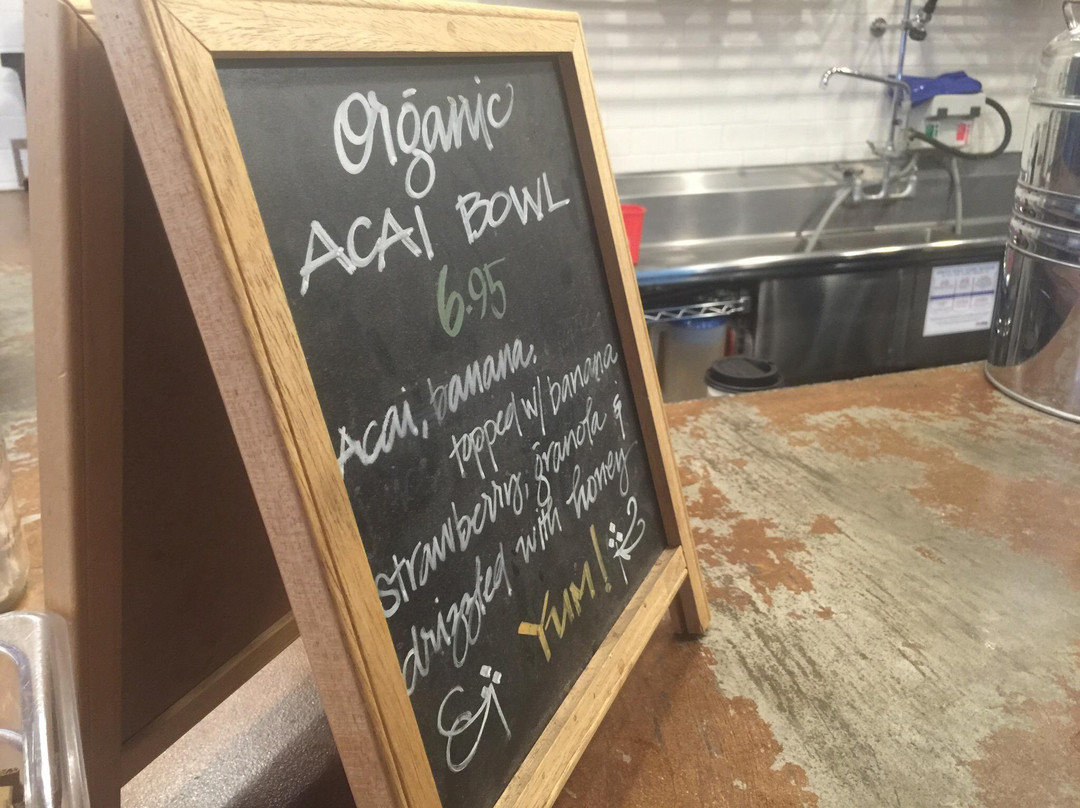 Organic
ACAI BOWL
6.95
Acai, banana.
topped w/ banana
strawberry, granola &
drizzled with honey
YUM!